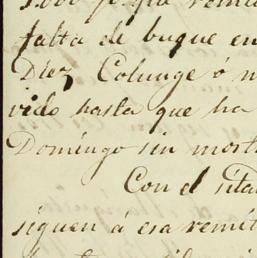 falta de buque en
Diez Colunge ó n
vido hasta que ha
Domingo sin mort
Con el cita
siguen á esa remit